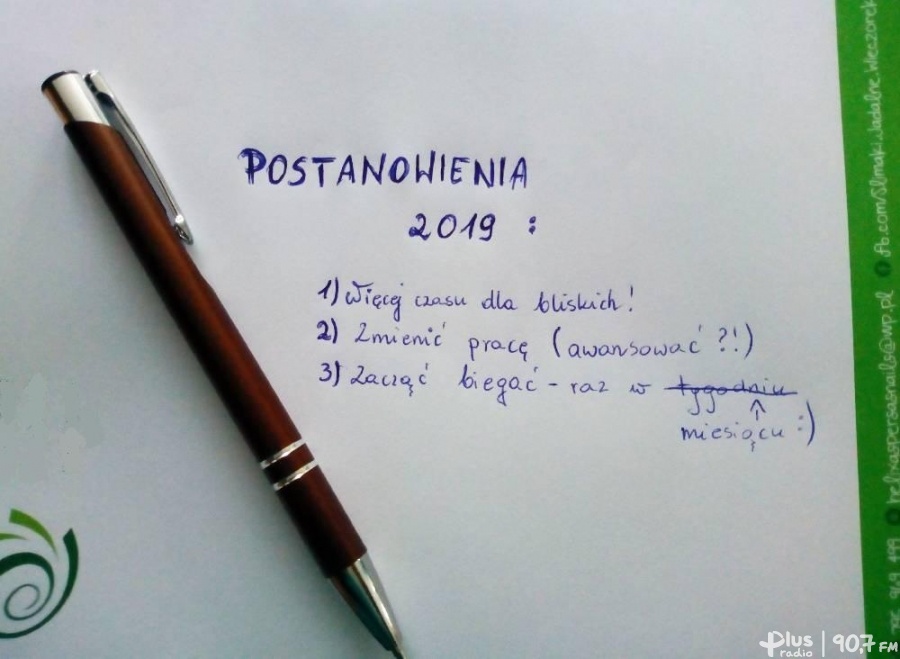 POSTANOWIENIA
2019 :
1) Więcej czasu dla bliskich!
2) Zmienić pracę (awansować ?!)
3) Zacząć biegać - raz w tygodniu
miesiącu :)
fb.com/Slimaki.Jadalne.Wieczorek
helixaspersasnails@wp.pl
969 499
Plus radio | 90,7 FM